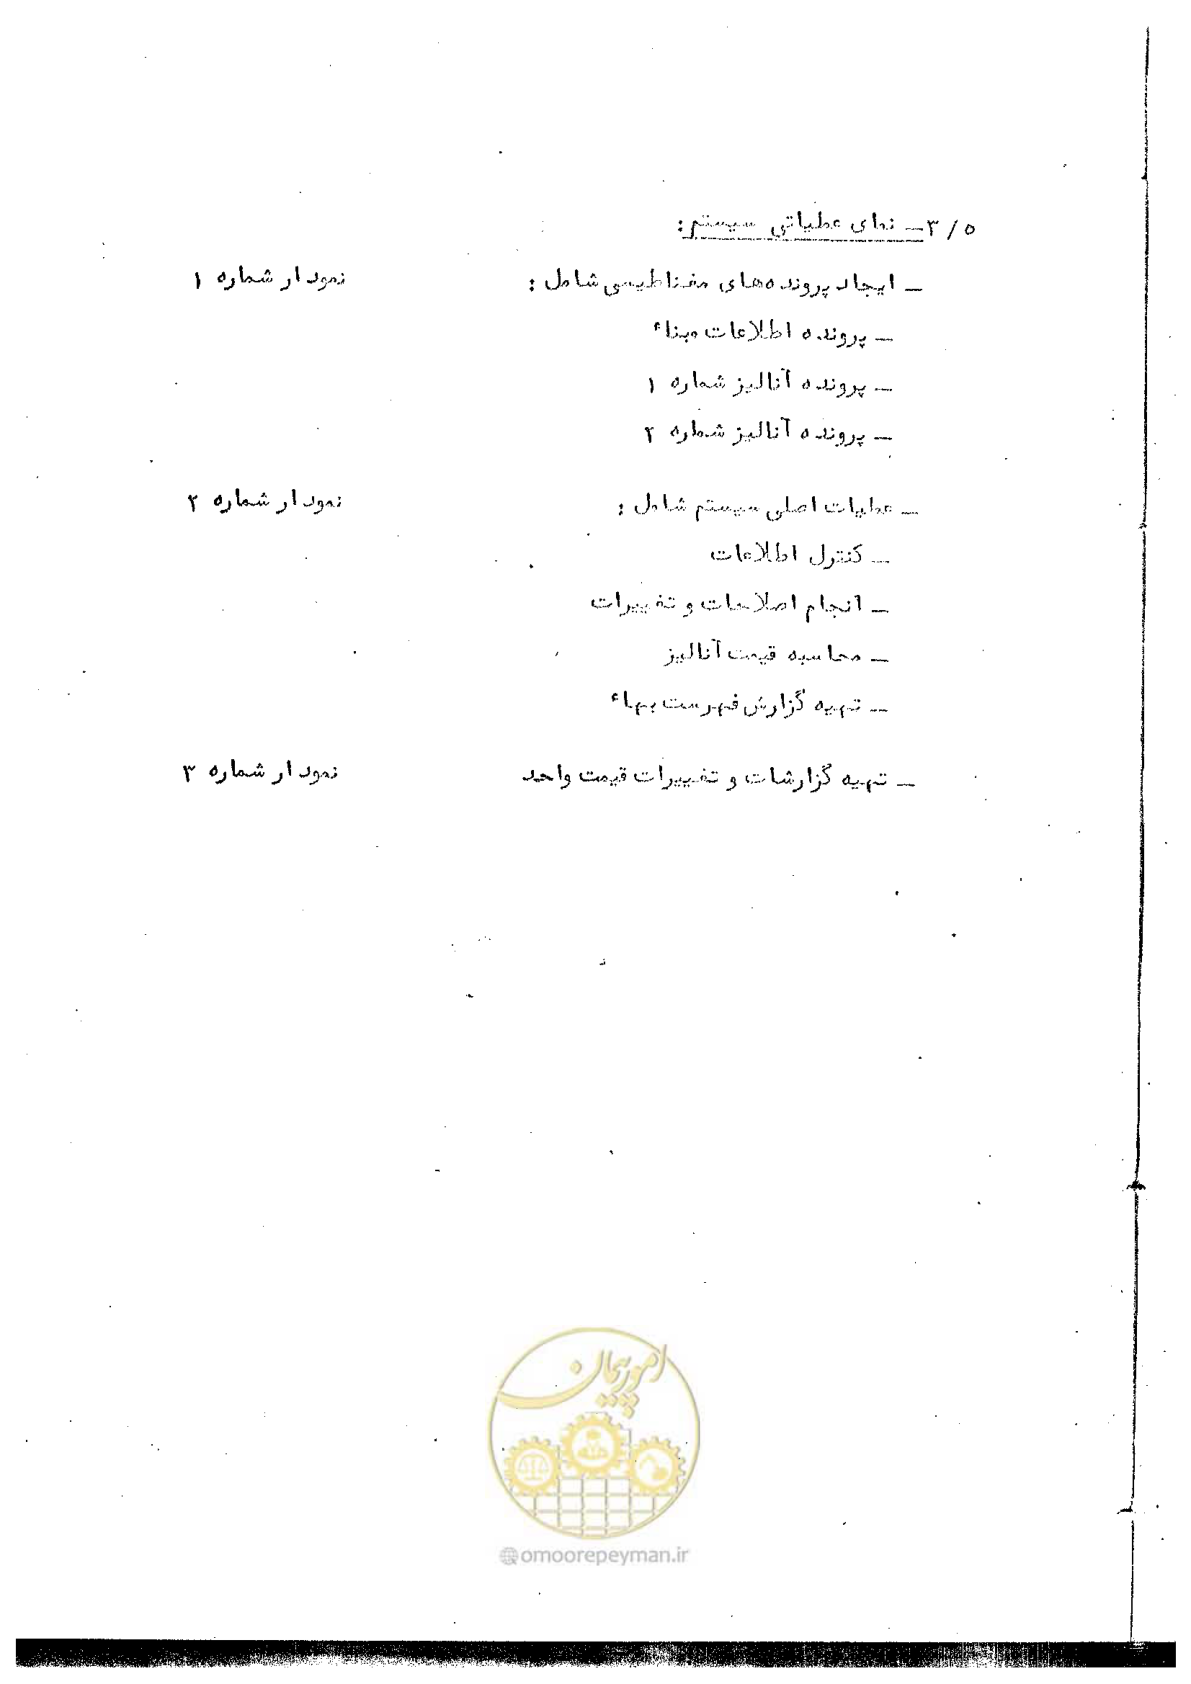 ۳/۵ـ نمای عملیاتی سیستم:
ـ ایجاد پرونده‌های مغناطیسی شامل : نمودار شماره ۱
ـ پرونده اطلاعات مبناء
ـ پرونده آنالیز شماره ۱
ـ پرونده آنالیز شماره ۲
ـ عملیات اصلی سیستم شامل : نمودار شماره ۲
ـ کنترل اطلاعات
ـ انجام اصلاحات و تغییرات
ـ محاسبه قیمت آنالیز
ـ تهیه گزارش فهرست بهاء
ـ تهیه گزارشات و تغییرات قیمت واحد نمودار شماره ۳
امور پیمان
@omoorepeyman.ir